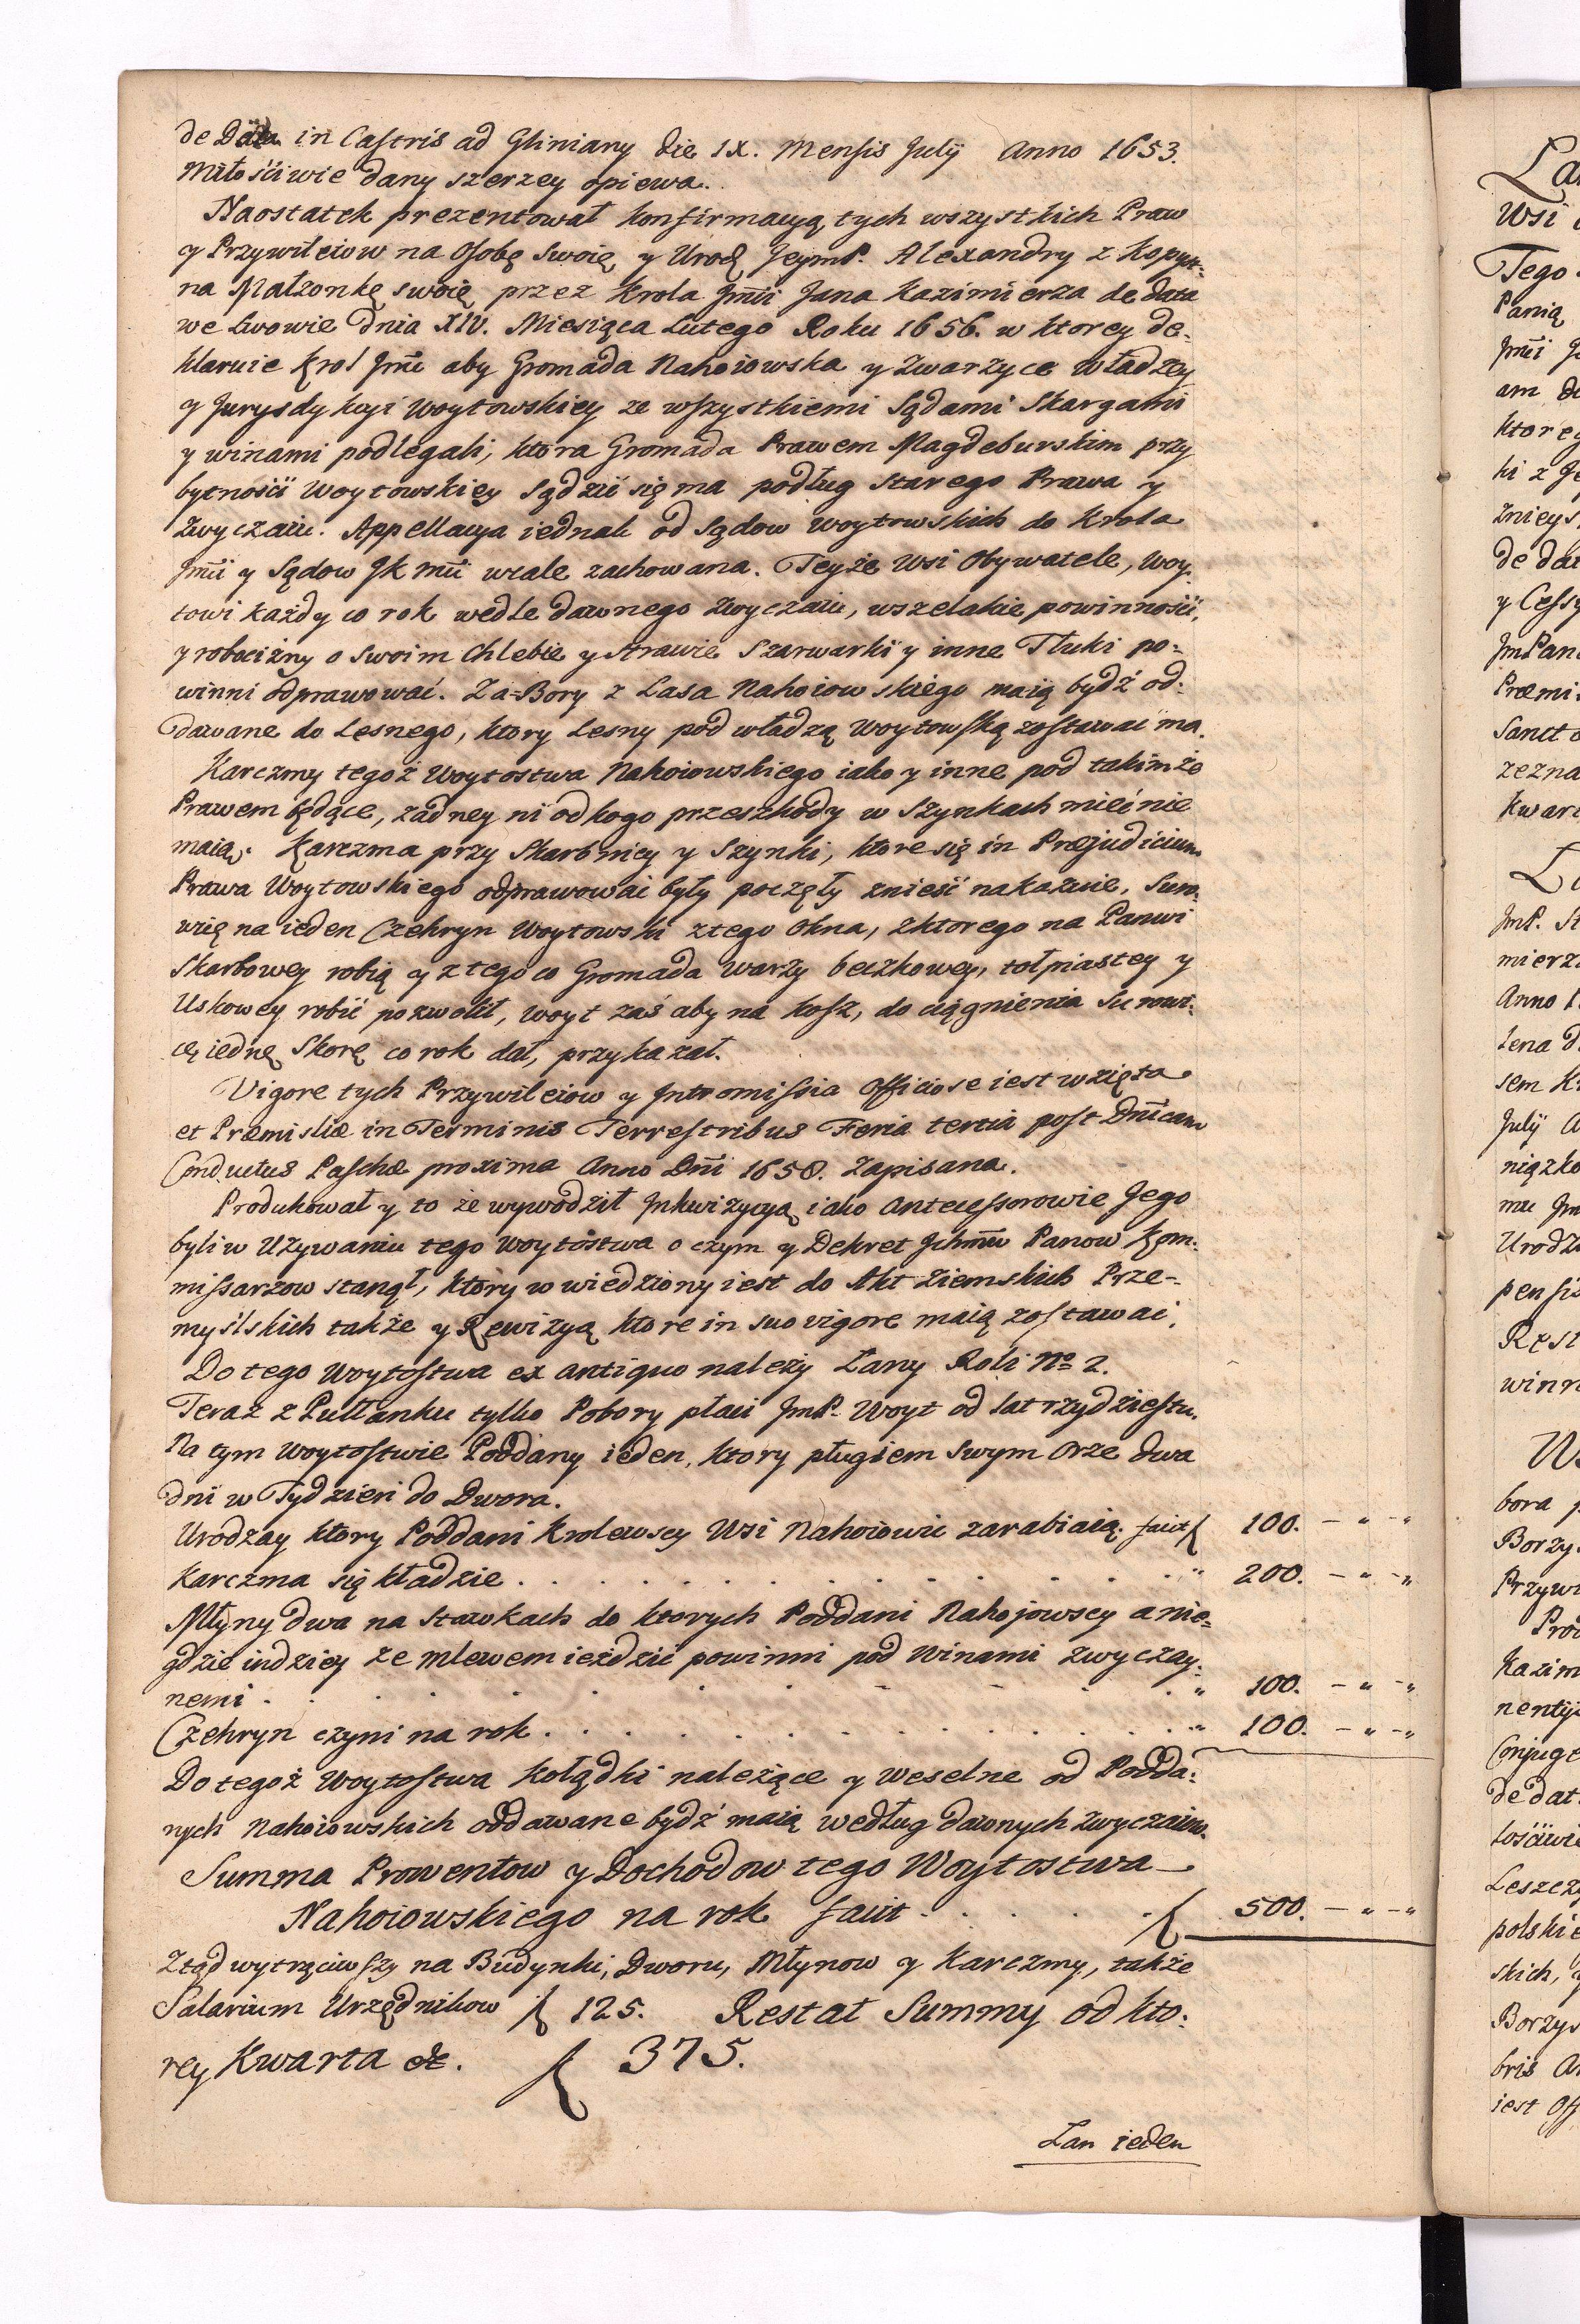 de Data in Castris ad Gliniany die IX. Mensis July Anno 1653.
Miłościwie dany szerzey opiewa.
Naostatek prezentował konfirmacyą tych wszystkich Praw
y Przywileiow na Osobę swoię y Urod Jeymć. Alexandry z Kopyst:
na Małzonkę swoię przez Krola Jmći Jana Kazimierza de data
we Lwowie dnia XIV. Miesiąca Lutego Roku 1656. w ktorey de-
klaruie Krol Jmć aby Gromada Nahoiowska y Zwarzyce władzey
y Jurysdykcyi Woytowskiey ze wszystkiemi Sądami Skargami
y winami podlegali, ktora Gromada Prawem Magdeburskim przy
bytności Woytowskiey Sądzić się ma podług starego Prawa y
Zwyczaiu. Appellacya iednak od Sądow Woytowskich do Krola
Jmći y Sądow JK mći wcale zachowana. Teyże Wsi Obywatele, Woy-
towi każdy co rok wedle dawnego zwyczaiu, wszelakie powinności,
y robocizny o swoim Chlebie y strawie Szarwarki y inne Tłuki po-
winni odprawować. Za-Bory z Lasa Nahoiowskiego maią bydź od-
dawane do Lesnego, ktory Lesny pod władzą Woytowską zostawać ma.
Karczmy tegoż Woytostwa Nahoiowskiego iako y inne pod takimże
Prawem będące, żadney ni od kogo przeszkody w Szynkach mieć nie
maią. Karczma przy Skarbnicy y Szynki, ktore się in Præjudicium
Prawa Woytowskiego odprawować były poczęły znieść nakazuie, Suro-
wię na ieden Czehryn Woytowski z tego Okna, z ktorego na Panwi
Skarbowey robią y z tego co Gromada warzy beczkowey, tołpiastey y
Uskowey robić pozwolił, Woyt zaś aby na kosz, do ciągnienia Surowi-
cy iednę Skorę co rok dał, przykazał.
Vigore tych Przywileiow y Intromissia Officiose iest wzięta
et Præmisliæ in Terminis Terrestribus Feria tertia post Dnicam
Conductus Paschæ proxima Anno Dni 1658. Zapisana.
Produkował y to że wywodził Inkwizycyą iako Antecessorowie Jego
byli w Używaniu tego Woytostwa o czym y Dekret Ichmciw Panow Kom-
missarzow stanął, ktory wwiedziony iest do Akt Ziemskich Prze-
myślskich także y Rewizyą ktore in suo vigore maią zostawać.
Do tego Woytostwa ex antiquo należy Łany Roli No 2.
Teraz z Pułłanku tylko Pobory płaci JmP. Woyt od lat trzydziestu.
Na tym Woytostwie Poddany ieden, ktory pługiem swym Orze dwa
dni w Tydzień do Dwora.
Urodzay ktory Poddani Krolewscy Wsi Nahoiowic zarabiaią. facit f 100. - " - "
Karczma się kładzie . . . . . . . . . . " 200. - " - "
Młyny dwa na Stawkach do ktorych Poddani Nahojowscy a nie-
gdzie indziey ze mlewem ieździć powinni pod Winami zwyczay-
nemi . . . . . . . . . . " 100. - " - "
Czehryn czyni na rok . . . . . . . . . . " 100. - " - "
Do tegoż Woytostwa kołądki należące y Weselne od Podda-
nych Nahoiowskich oddawane bydź maią według dawnych zwyczaiow.
Summa Prowentow y Dochodow tego Woytostwa
Nahoiowskiego na rok facit . . . . . f 500. - " - "
Ztąd wytrąciwszy na Budynki, Dworu, Młynow y Karczmy, także
Salarium Urzędnikow f 125. Restat Summy od kto-
rey Kwarta &c. f 375.
Łan ieden